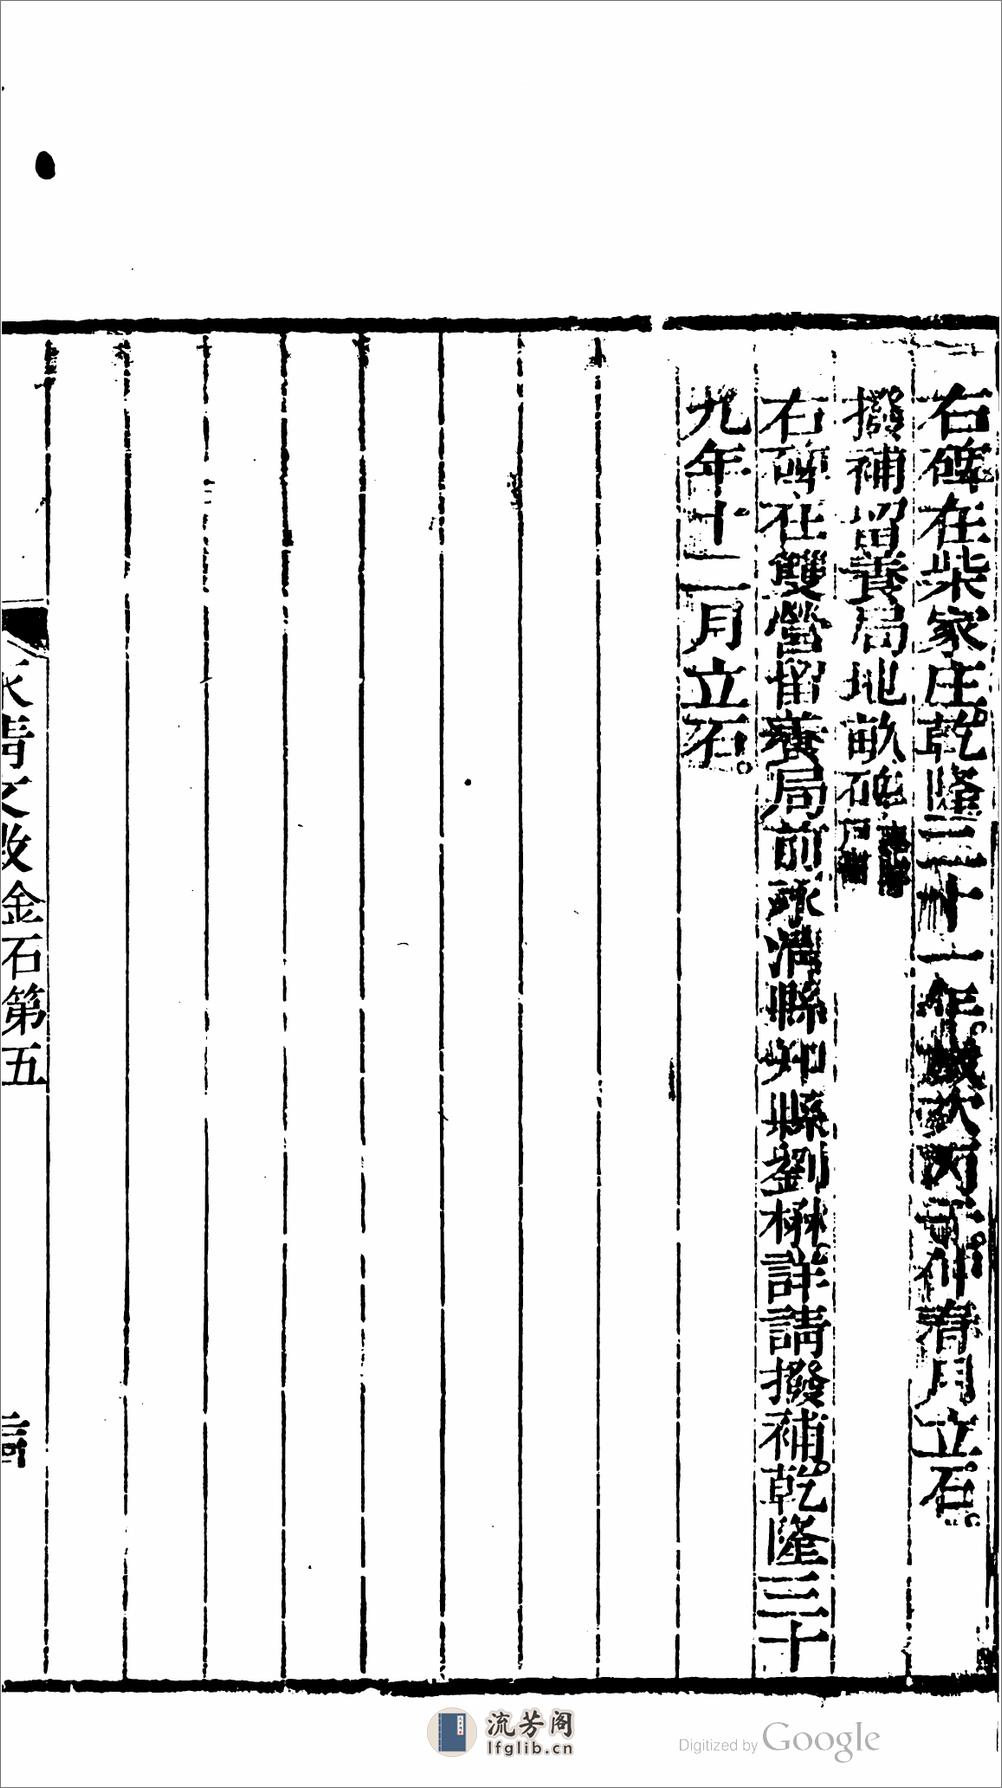 右碑在柴家庄。乾隆三十一年。歲次丙。仲春月立石。
撥補留養局地畝碑
右碑在雙營留養局前永清縣知縣劉楙。詳請撥補。乾隆三十
九年十二月立石。
永清文徵金石第五
流芳阁
lfglib.cn
Digitized by Google